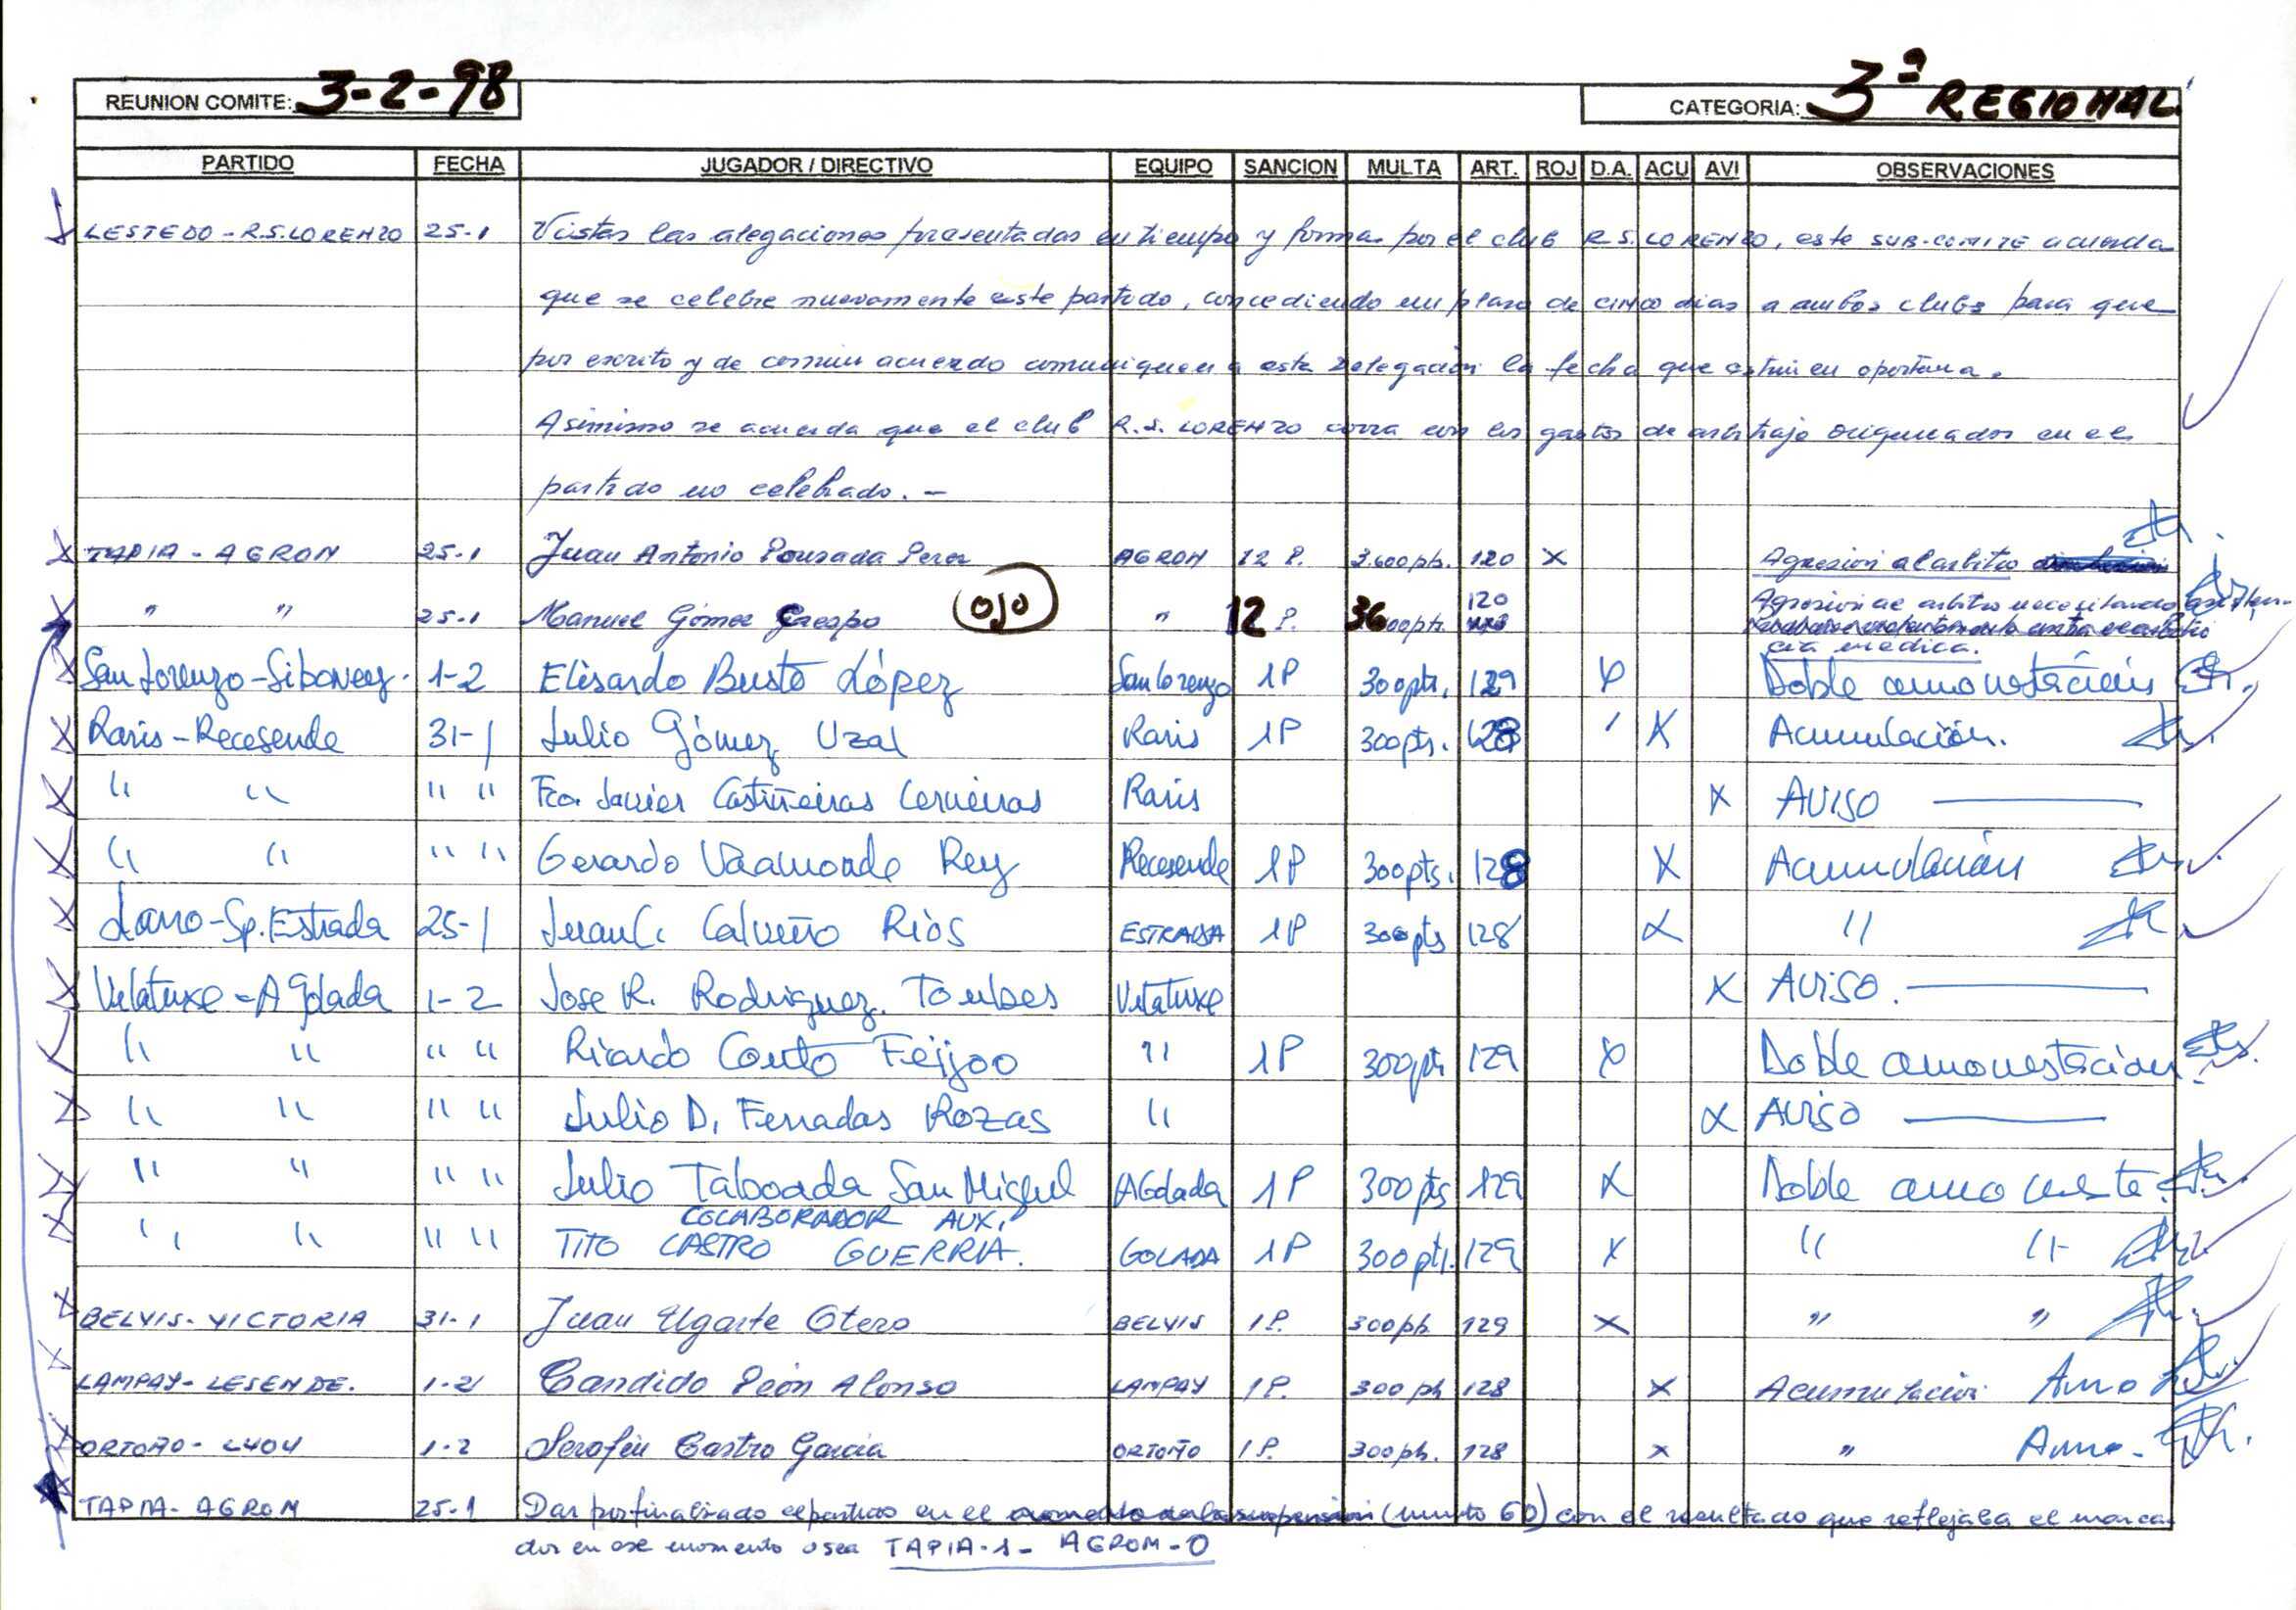 REUNION COMITE: 3-2-98 CATEGORIA: 3ª REGIONAL
PARTIDO FECHA JUGADOR / DIRECTIVO EQUIPO SANCION MULTA ART. ROJ D.A. ACU AVI OBSERVACIONES
LESTEDO - R.S. LORENZO 25-1 Vistas las alegaciones presentadas en tiempo y forma por el club R.S. LORENZO, este SUB-COMITE acuerda
que se celebre nuevamente este partido, concediendo un plazo de cinco dias a ambos clubs para que
por escrito y de comun acuerdo comuniquen a esta Delegación la fecha que estimen oportuna.
Asimismo se acuerda que el club R.S. LORENZO corra con los gastos de arbitraje originados en el
partido no celebrado. -
TAPIA - AGRON 25-1 Juan Antonio Pousada Perez AGRON 12 P. 3.600 pts. 120 X Agresión al arbitro
" " 25-1 Manuel Gómez Crespo OJO " 12 P. 3600 pts. 120 Agresion al arbitro necesitando asisten-
cia medica.
San Lorenzo - Siboney. 1-2 Elisardo Busto López San Lorenzo 1P 300 pts. 129 X Doble amonestación
Raris - Recesende 31-1 Julio Gómez Uzal Raris 1P 300 pts. 128 X Acumulación.
" " " " Fco. Javier Castiñeiras Cerneiras Raris X AVISO
" " " " Gerardo Vaamonde Rey Recesende 1P 300 pts. 128 X Acumulación
Larro - Sp. Estrada 25-1 Juan C. Calviño Ríos ESTRADA 1P 300 pts 128 X "
Vilatuxe - A Golada 1-2 Jose R. Rodriguez Toubes Vilatuxe X AVISO.
" " " " Ricardo Couto Feijoo " 1P 300 pts 129 X Doble amonestación
" " " " Julio D. Ferradas Rozas " X AVISO
" " " " Julio Taboada San Miguel A Golada 1P 300 pts 129 X Doble amoneste.
COLABORADOR AUX.
" " " " TITO CASTRO GUERRIA. GOLADA 1P 300 pts. 129 X " "
BELVIS - VICTORIA 31-1 Juan Ugarte Otero BELVIS 1P. 300 pts. 129 X " "
LAMPAY - LESENDE. 1-2 Candido Peón Alonso LAMPAY 1P. 300 pts 128 X Acumulación
ORTOÑO - LYOY 1-2 Serafin Castro García ORTOÑO 1P. 300 pts. 128 X "
TAPIA - AGRON 25-1 Dar por finalizado el partido en el momento de la suspensión (minuto 60) con el resultado que reflejaba el marca-
dor en ese momento o sea TAPIA-1- AGROM-0